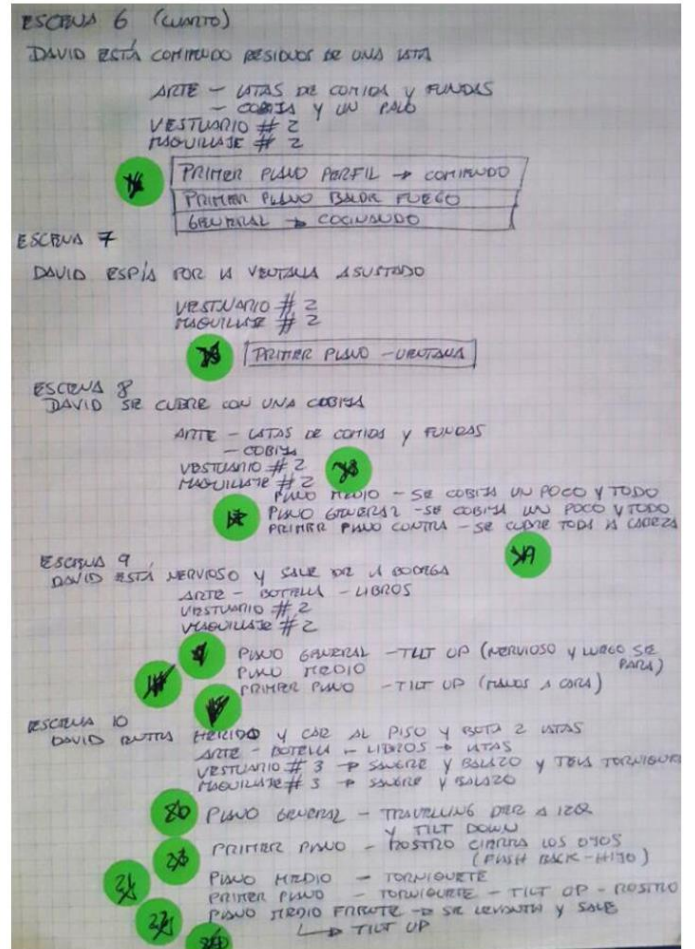 ESCENA 6 (CUARTO)
DAVID ESTÁ COMIENDO RESIDUOS DE UNA LATA
ARTE - LATAS DE COMIDA Y FUNDAS
- COBIJA Y UN PALO
VESTUARIO # 2
MAQUILLAJE # 2
PRIMER PLANO PERFIL → COMIENDO
PRIMER PLANO BALDE FUEGO
GENERAL → COCINANDO
ESCENA 7
DAVID ESPÍA POR LA VENTANA ASUSTADO
VESTUARIO # 2
MAQUILLAJE # 2
PRIMER PLANO - VENTANA
ESCENA 8
DAVID SE CUBRE CON UNA COBIJA
ARTE - LATAS DE COMIDA Y FUNDAS
- COBIJA
VESTUARIO # 2
MAQUILLAJE # 2
PLANO MEDIO - SE COBIJA UN POCO Y TODO
PLANO GENERAL - SE COBIJA UN POCO Y TODO
PRIMER PLANO CONTRA - SE CUBRE TODA LA CABEZA
ESCENA 9
DAVID ESTÁ NERVIOSO Y SALE DE LA BODEGA
ARTE - BOTELLA - LIBROS
VESTUARIO # 2
MAQUILLAJE # 2
PLANO GENERAL - TILT UP (NERVIOSO Y LUEGO SE PARA)
PLANO MEDIO
PRIMER PLANO - TILT UP (MANOS A CARA)
ESCENA 10
DAVID ENTRA HERIDO Y CAE AL PISO Y BOTA 2 LATAS
ARTE - BOTELLA - LIBROS → LATAS
VESTUARIO # 3 → SANGRE Y BALAZO Y TELA TORNIQUETE
MAQUILLAJE # 3 → SANGRE Y BALAZO
PLANO GENERAL - TRAVELLING DER A IZQ
Y TILT DOWN
PRIMER PLANO - ROSTRO CIERRA LOS OJOS
(FLASH BACK - HIJO)
PLANO MEDIO - TORNIQUETE
PRIMER PLANO - TORNIQUETE - TILT UP - ROSTRO
PLANO MEDIO FRENTE → SE LEVANTA Y SALE
↳ TILT UP